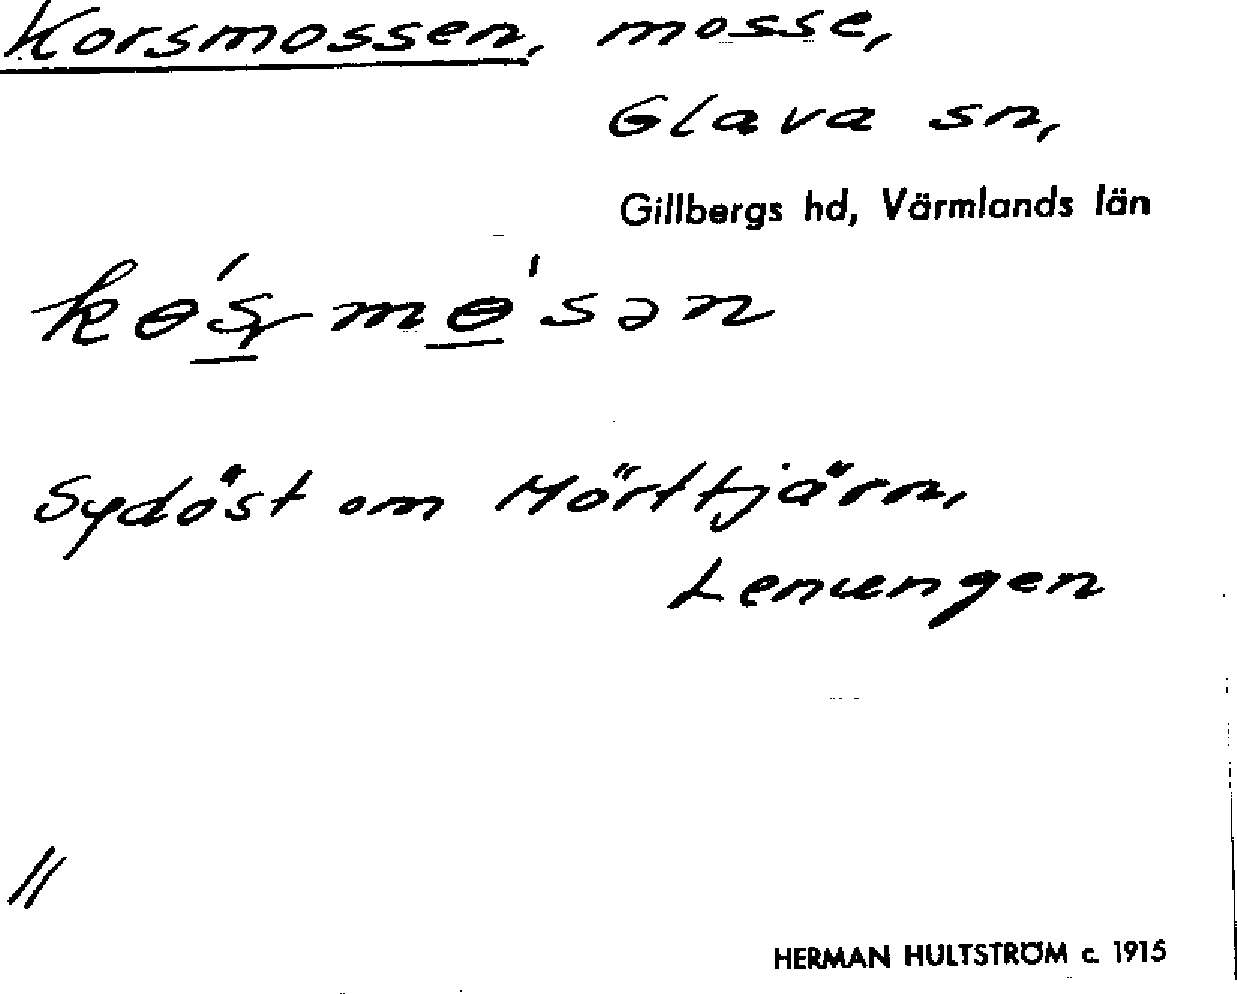 Korsmossen, mosse,
Glava sn,
Gillbergs hd, Värmlands län
kɵ́ʂmɵ́sən
Sydöst om Mörttjärn,
Lenungen
//
HERMAN HULTSTRÖM c. 1915